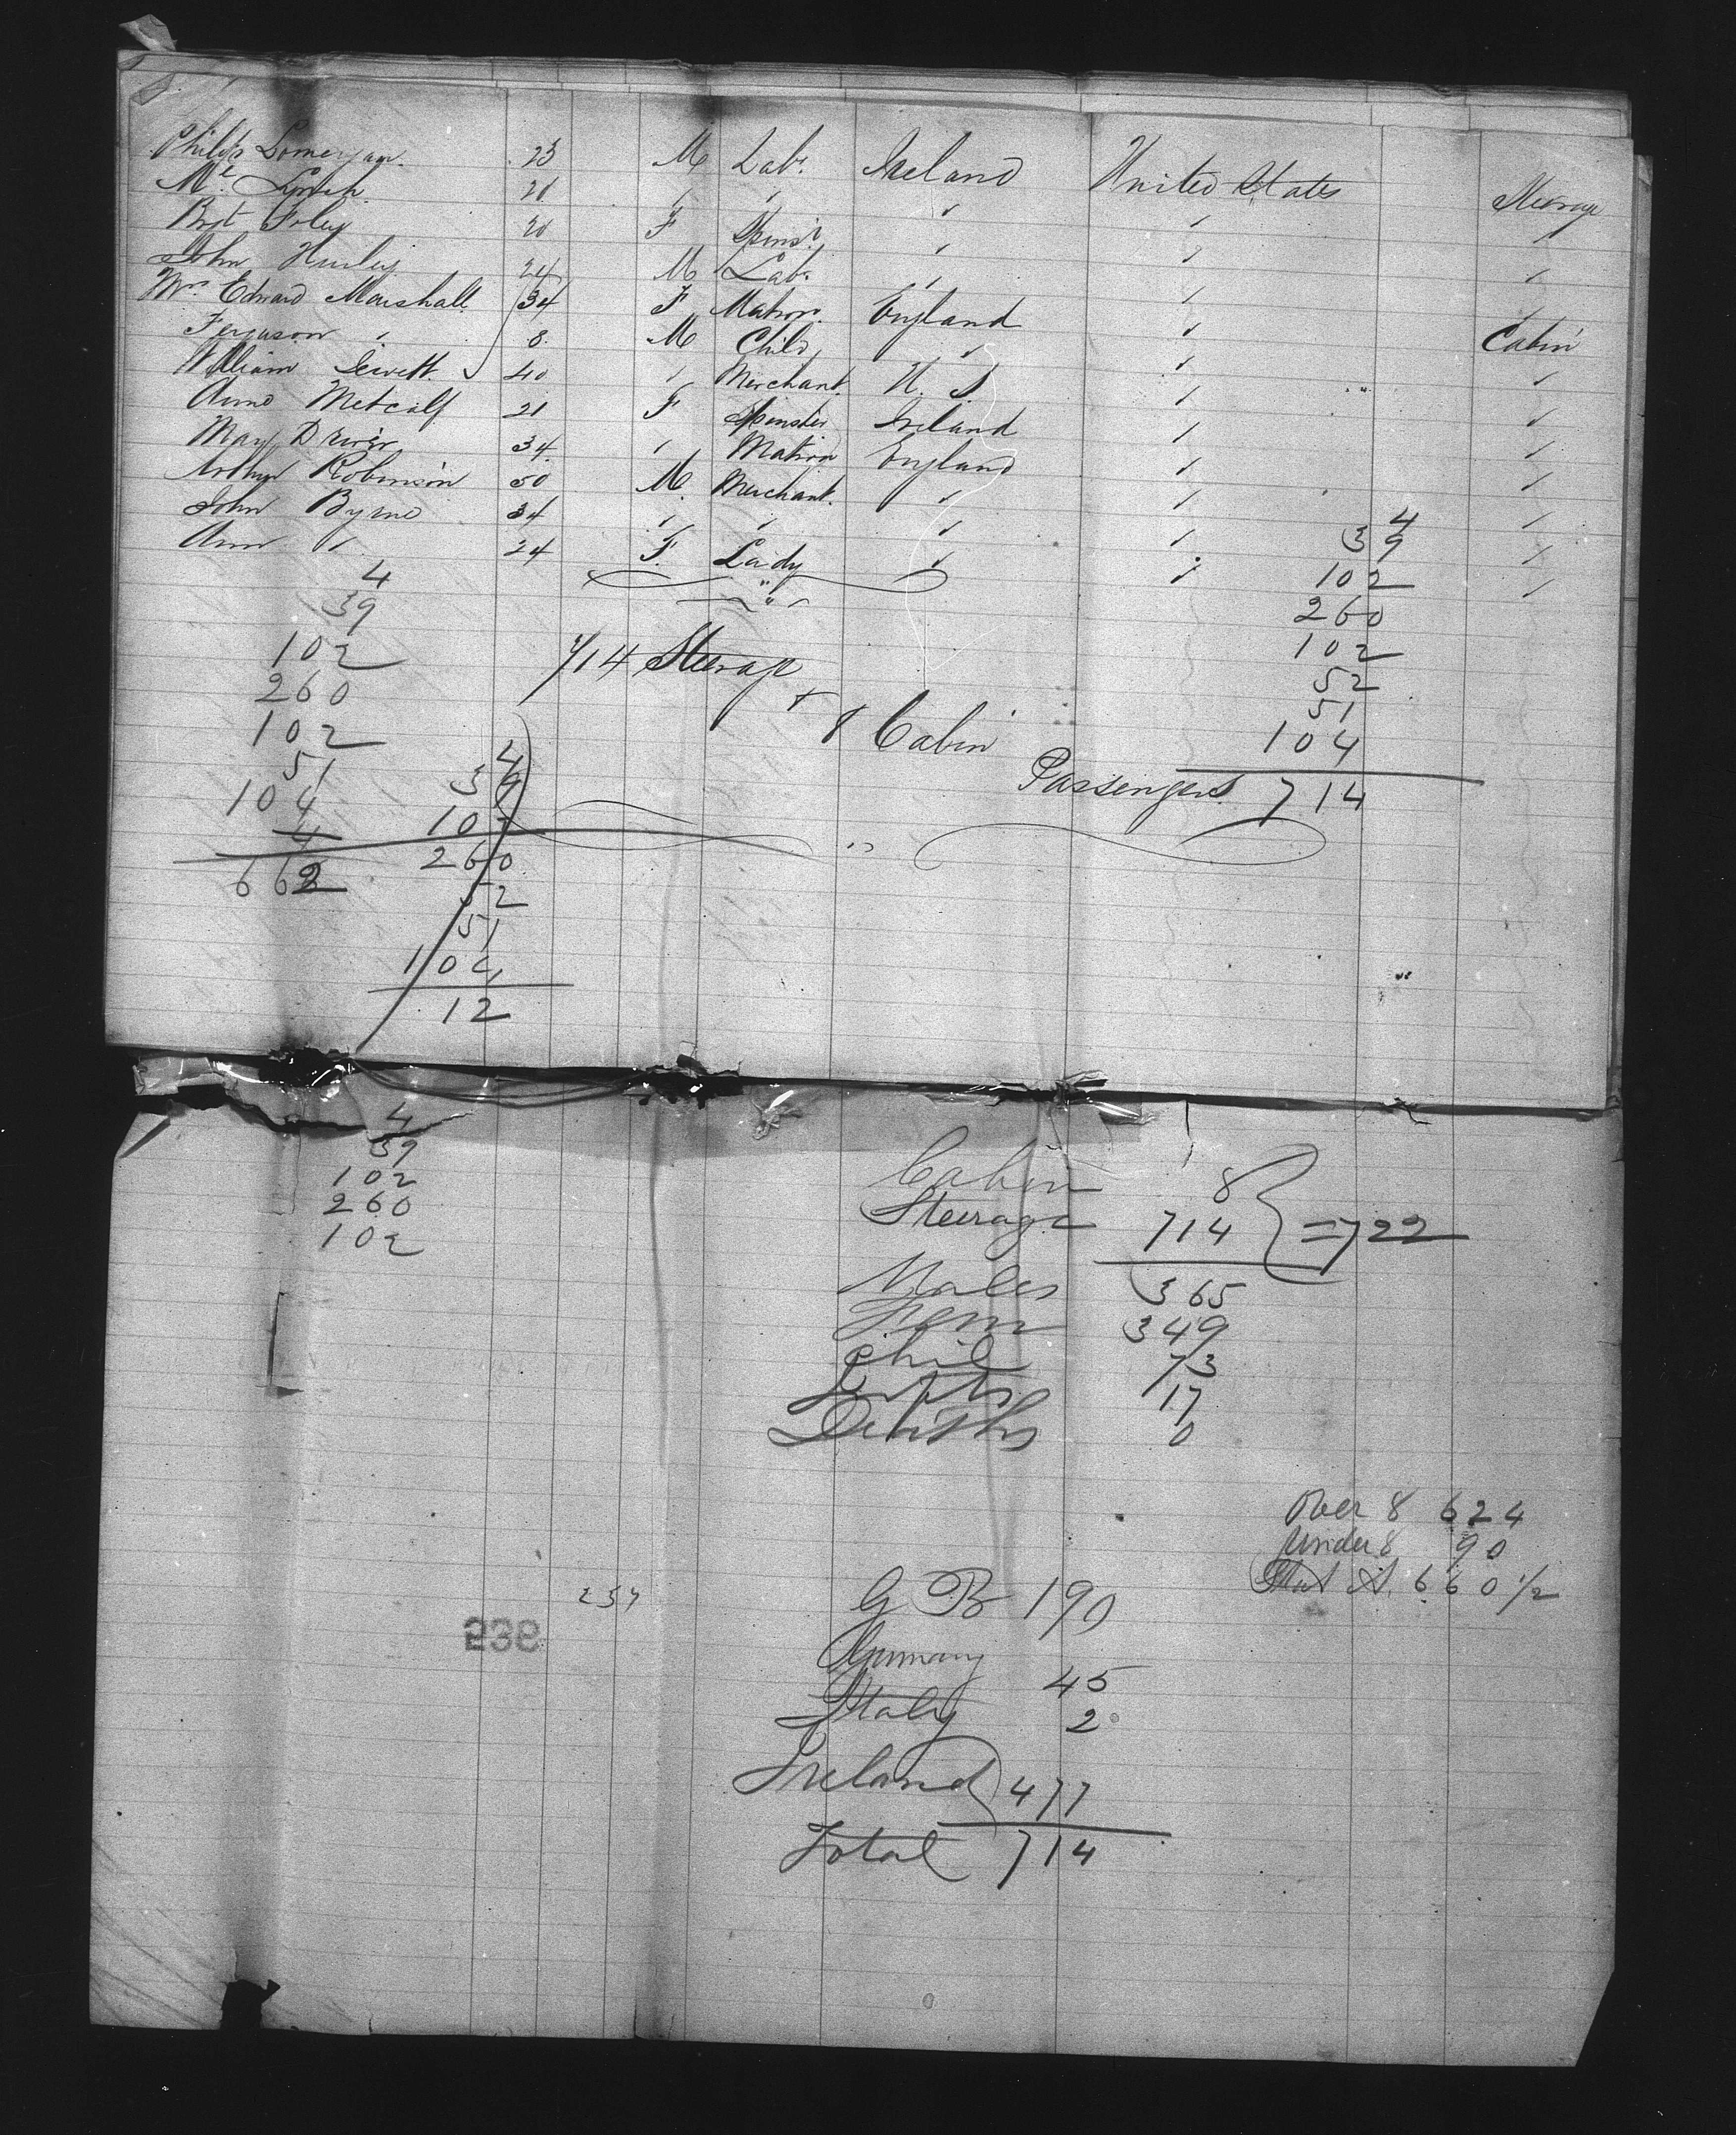 Philip 23 M Labr Ireland United States Steerage
Ml. Lynch 21 " " " " "
Bridt Foley 20 F Spinsr " " "
John Hurley 24 M Labr " " "
Mrs Edward Marshall 34 F Matron England " Cabin
Ferguson " 8 M Child " " "
William Hewitt 40 " Merchant U. S. " "
Anne Metcalf 21 F Spinster Ireland " "
Mary Driver 34 " Matron England " "
Arthur Robinson 50 M. Merchant " " "
John Byrne 34 " " " " "
Ann " 24 F. Lady " " "
4
39
102
260
102
51
104
4
662
4
39
102
260
52
51
104
12
714 Steerage
& 8 Cabin
Passengers
4
39
102
260
102
52
51
104
714
4
39
102
260
102
Cabin 8
Steerage 714 = 722
Males 365
Fem 349
Chil 73
Infts 17
Deaths 0
Over 8 624
Under 8 90
Stat A. 660 1/2
237
238
G B 190
Germany 45
Italy 2
Ireland 477
Total 714